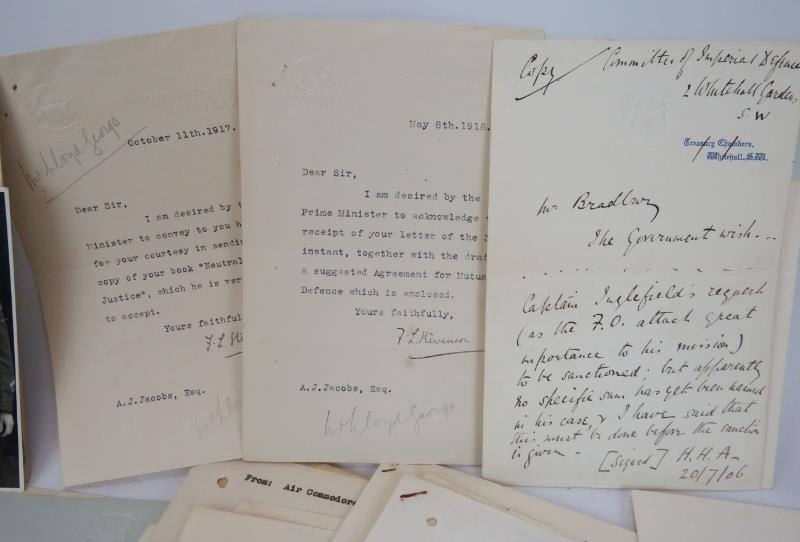 October 11th.1917.
Mr Lloyd George
Dear Sir,
I am desired by t
Minister to convey to you h
for your courtesy in sendin
copy of your book "Neutral
Justice", which he is ver
to accept.
Yours faithful
A.J.Jacobs, Esq.
May 8th.1918.
Dear Sir,
I am desired by the
Prime Minister to acknowledge
receipt of your letter of the
instant, together with the draf
a suggested Agreement for Mutua
Defence which is enclosed.
Yours faithfully,
F. L. Stevenson
A.J.Jacobs, Esq.
Mr Lloyd George
Copy
Committee of Imperial Defence
2 Whitehall Gardens
S W
Treasury Chambers,
Whitehall, S.W.
Mr Bradbury
The Government wish...
Captain Inglefield's request
(as the F.O. attach great
importance to his mission)
to be sanctioned: but apparently
no specific sum has yet been named
in his case & I have said that
this must be done before the sanction
is given -
[Signed] H.H.A-
20/7/06
From: Air Commodore